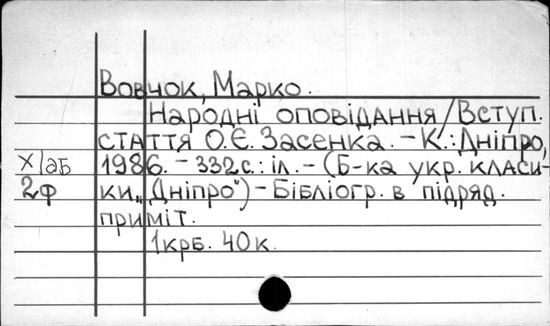 Вовчок, Марко.
Народні оповідання/Вступ.
стаття О.Є. Засенка. – К.: Дніпро,
х/аб 1986. – 332с.: іл. – (Б-ка укр. класи-
2ф ки „Дніпро") – Бібліогр. в підряд.
приміт.
1крб. 40к.